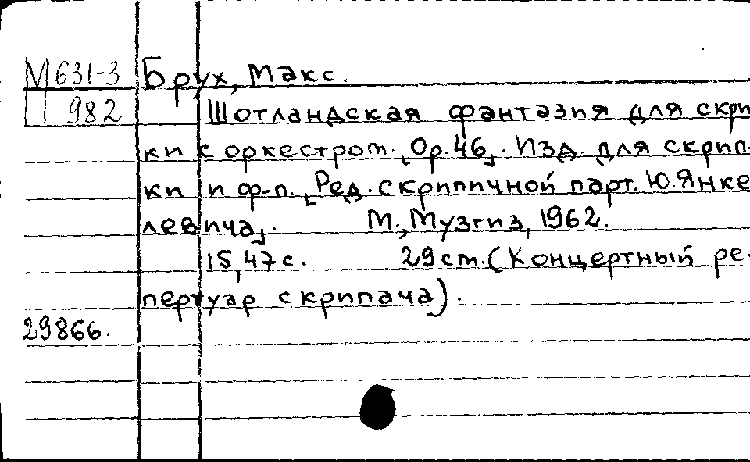 М631-3 Брух, Макс.
982 Шотландская фантазия для скрип
ки с оркестром. [Op. 46]. Изд. для скрип
ки и ф-п. [Ред. скрипичной парт. Ю. Янке
левича]. М., Музгиз, 1962.
15, 47 с. 29 cm. (Концертный ре-
пертуар скрипача).
29866.